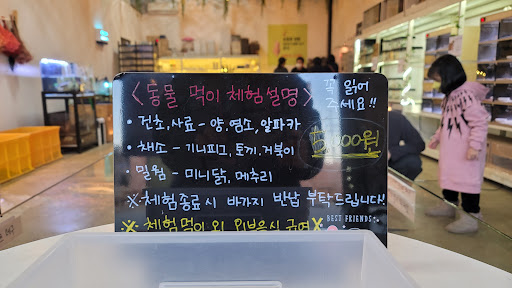 <동물 먹이 체험 설명>
꼭 읽어
주세요!!
• 건초, 사료 - 양, 염소, 알파카
• 채소 - 기니피그, 토끼, 거북이
000원
• 밀웜 - 미니닭, 메추리
※ 체험종료 시 바가지 반납 부탁드립니다!
BEST FRIENDS
※ 체험먹이 외 외부음식 급여 ※